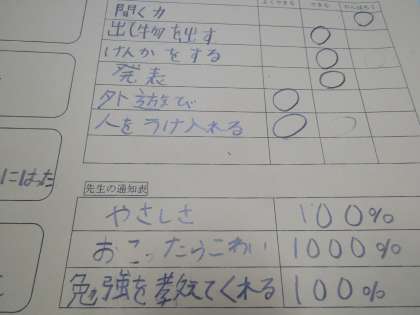 よくできる できる がんばろう
聞く力
出し物を出す
けんかをする
発表
外遊び
人をうけ入れる
にはった
先生の通知表
やさしさ 100%
おこったらこわい 1000%
勉強を教えてくれる 100%